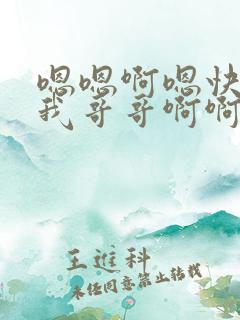 嗯嗯啊嗯快
我哥哥啊啊
王进科
未经同意禁止转载